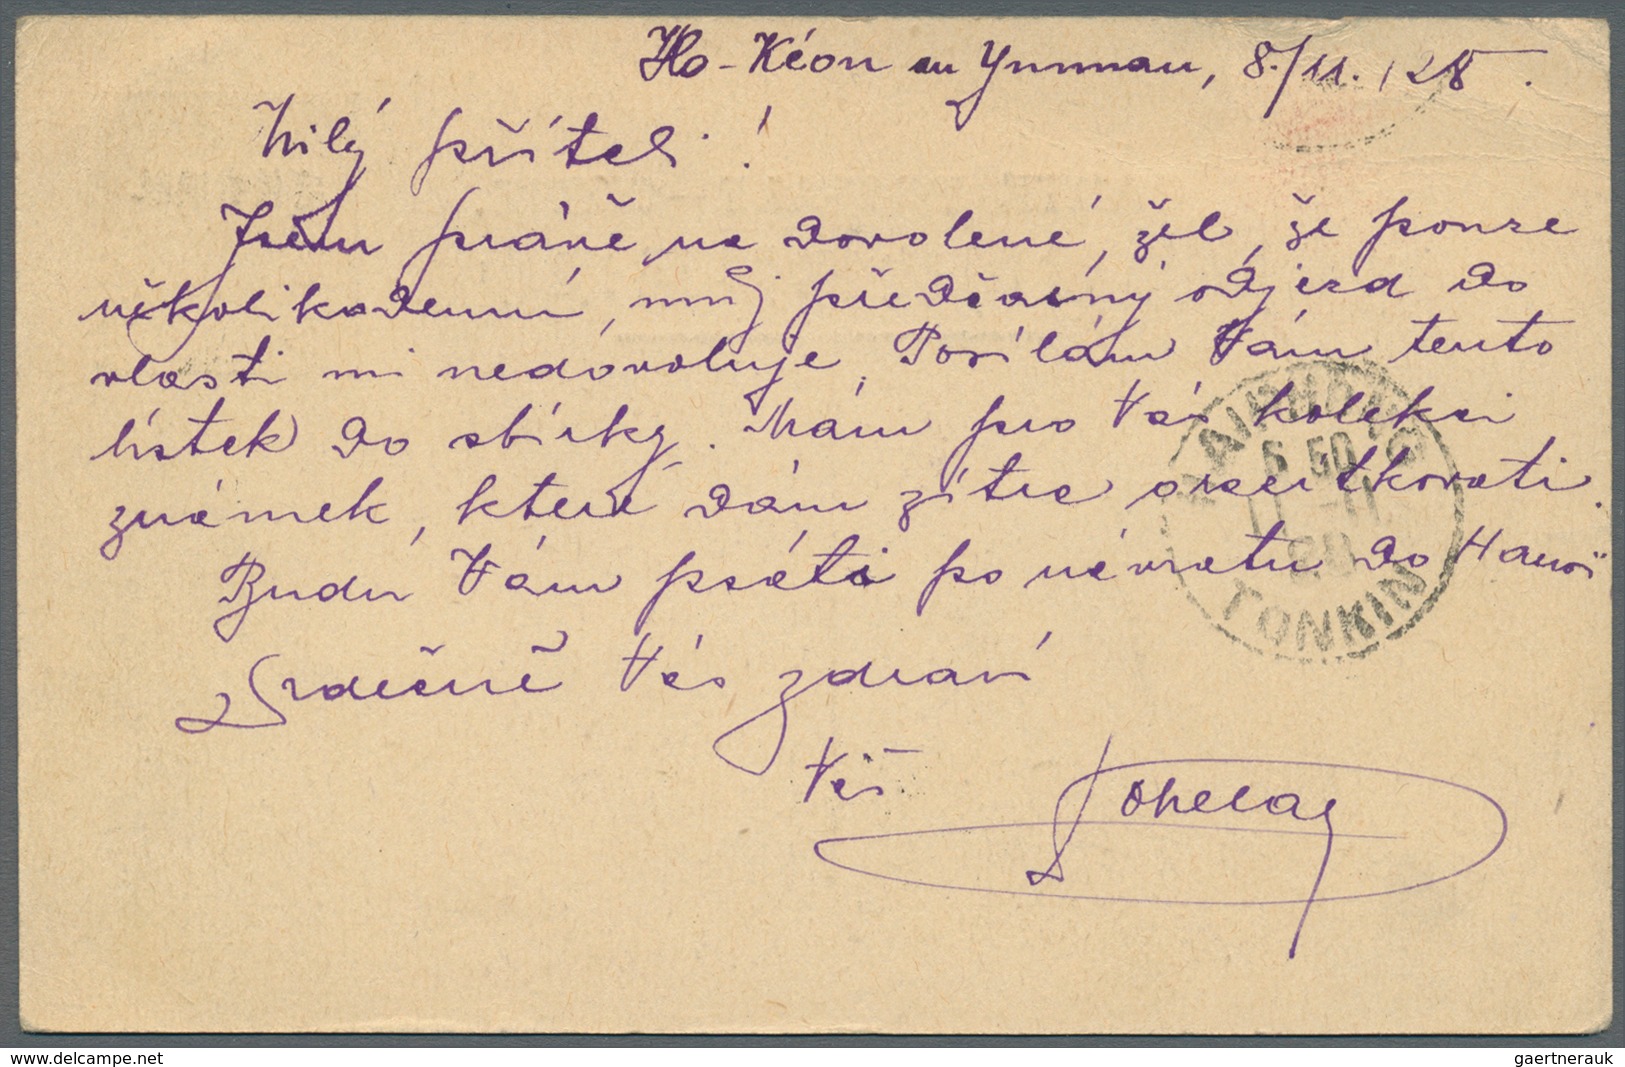 Ho-Kéou au Yunnan, 8./11. 28.
Milý příteli!
Jsem právě na dovolené, žel, že pouze
několikadenní, můj předčasný odjezd do
vlasti mi nedovoluje. Posílám Vám tento
lístek do sbírky. Mám pro Vás kolekci
známek, které dám zítra orazítkovati.
Budu Vám psáti po návratu do Hanoi
Srdečně Vás zdraví
Váš
HAIPHONG
6.50
11 -11
28
TONKIN
www.delcampe.net
gaertnerauk